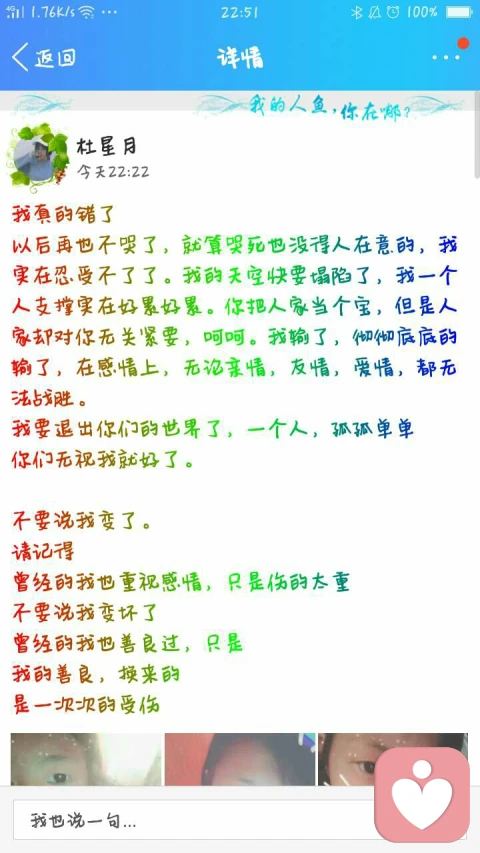 4G 1.76K/s ... 22:51 100%
返回 详情 ...
我的人鱼,你在哪?
杜星月
今天22:22
我真的错了
以后再也不哭了，就算哭死也没得人在意的，我
实在忍受不了了。我的天空快要塌陷了，我一个
人支撑实在好累好累。你把人家当个宝，但是人
家却对你无关紧要，呵呵。我输了，彻彻底底的
输了，在感情上，无论亲情，友情，爱情，都无
法战胜。
我要退出你们的世界了，一个人，孤孤单单
你们无视我就好了。
不要说我变了。
请记得
曾经的我也重视感情，只是伤的太重
不要说我变坏了
曾经的我也善良过，只是
我的善良，换来的
是一次次的受伤
我也说一句...